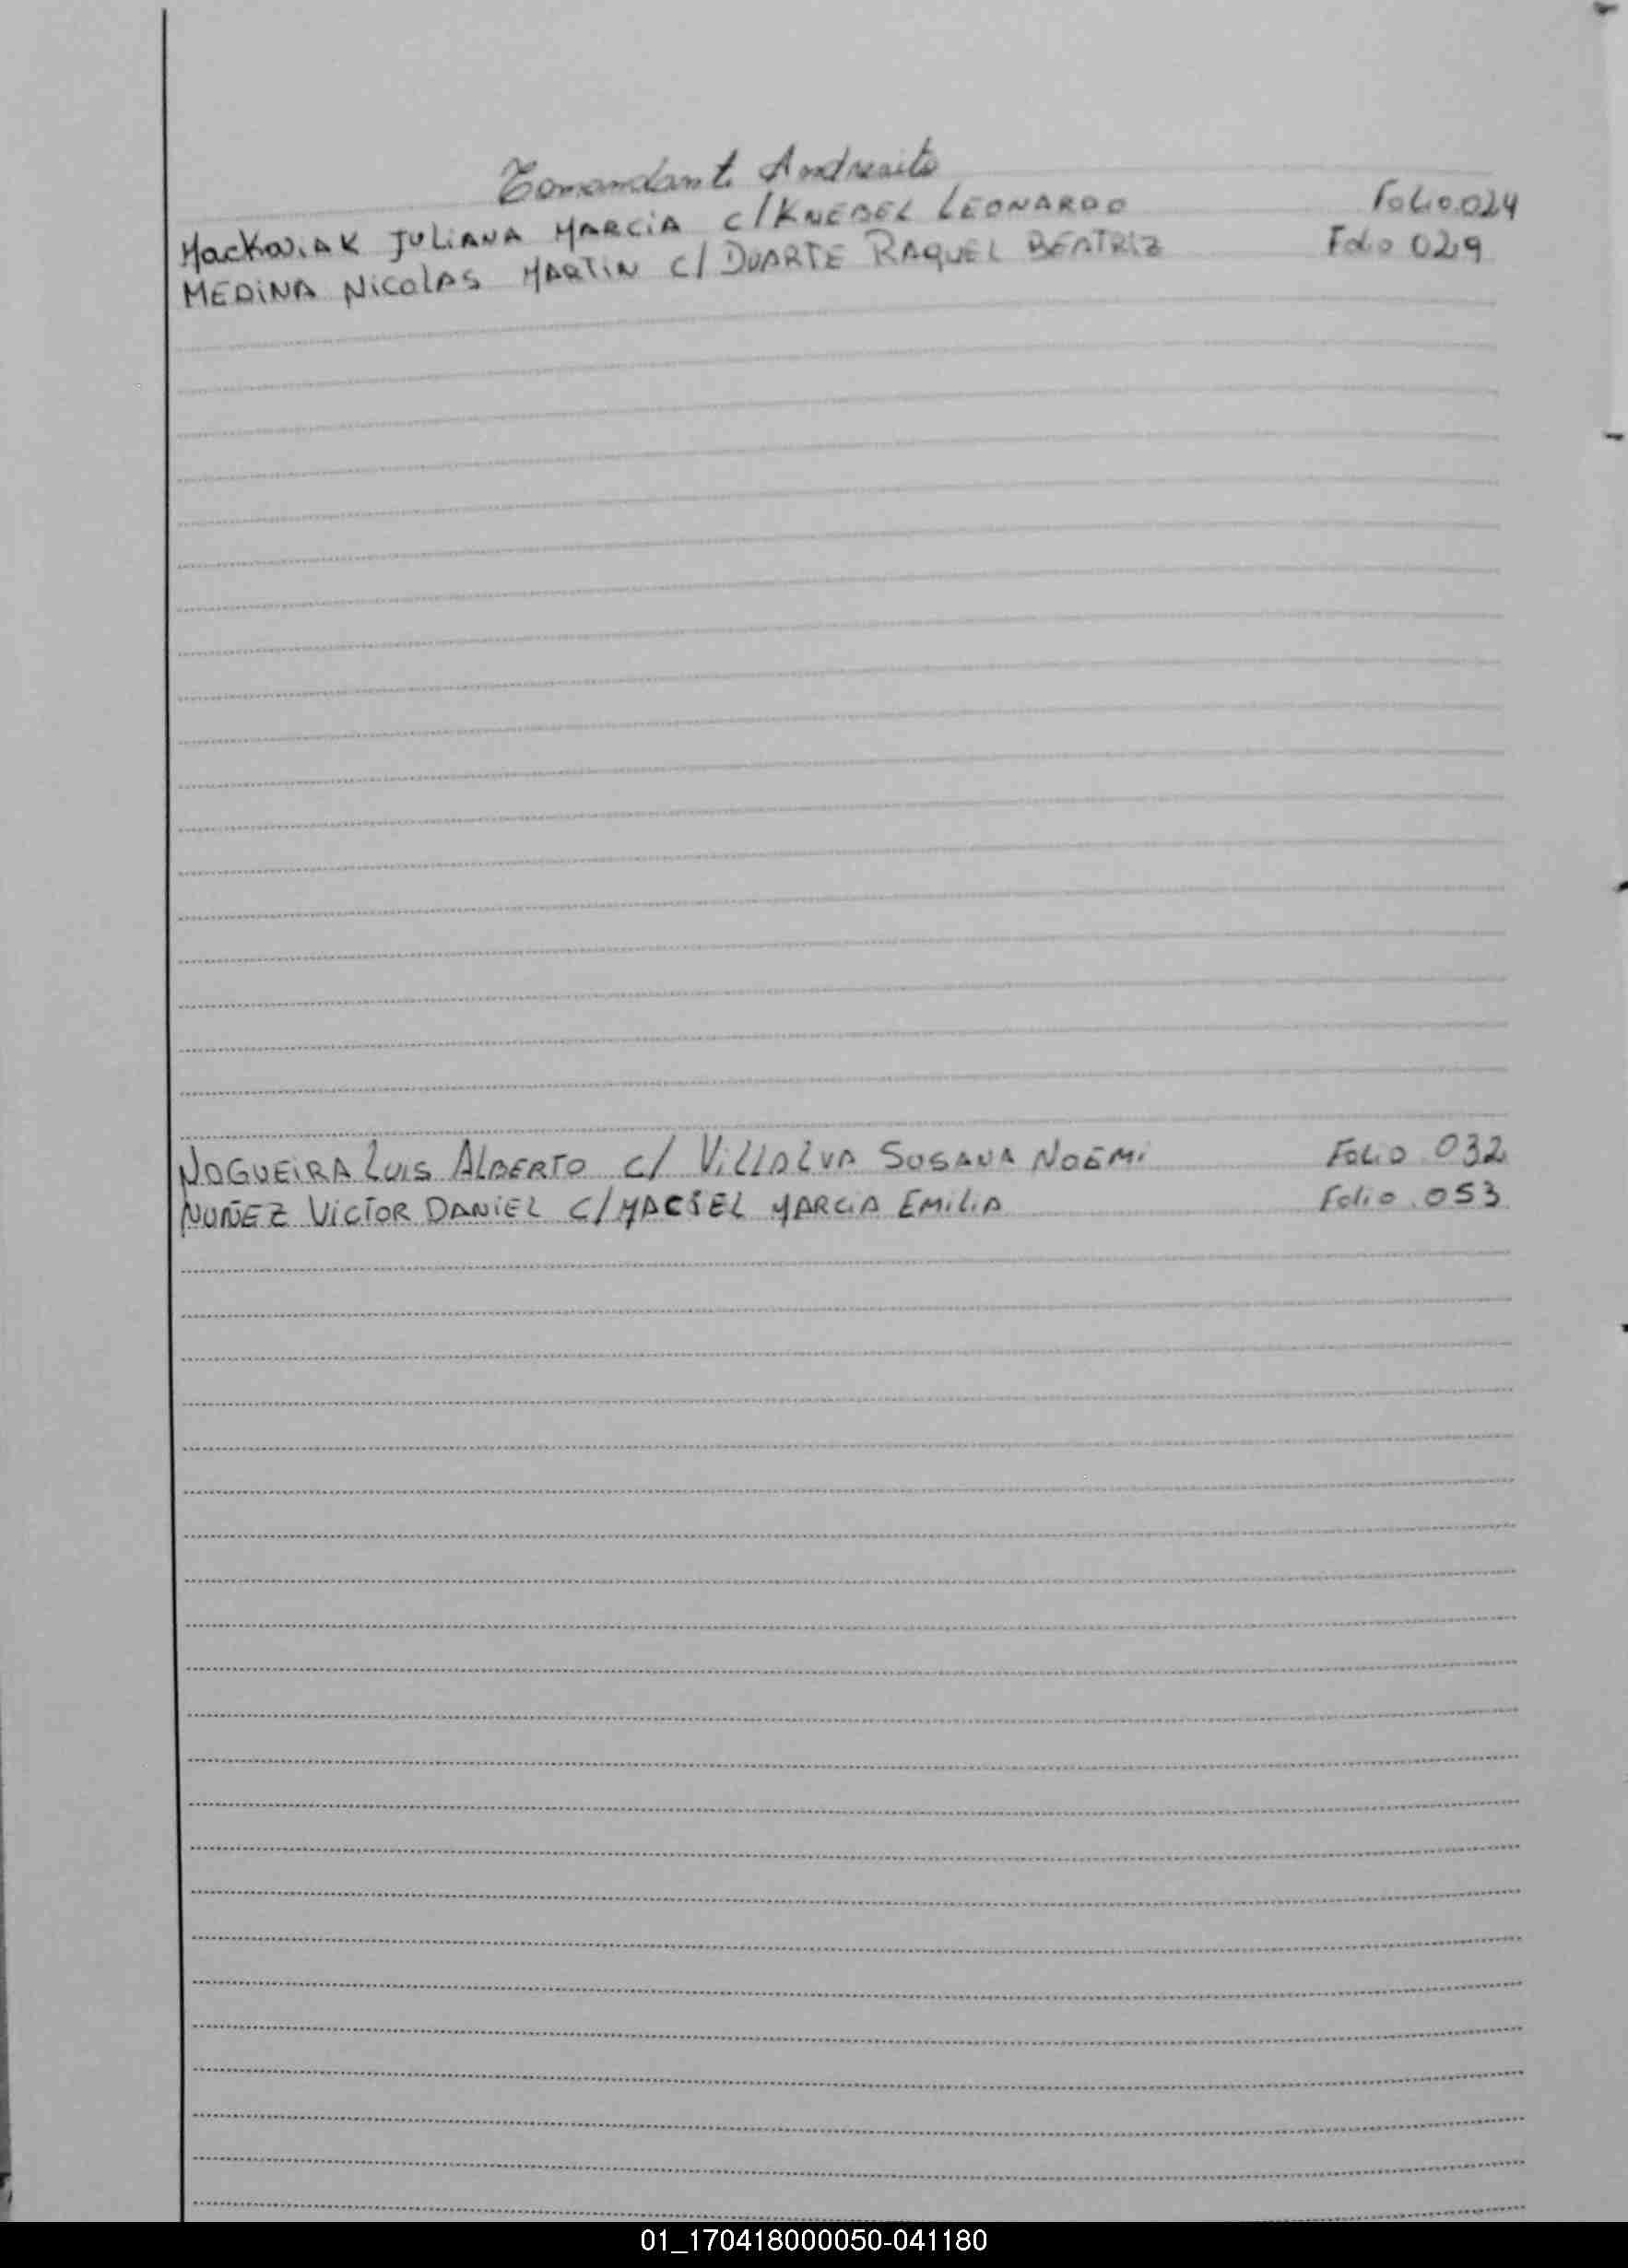 Comandante Andresito
Mackoviak Juliana Marcia c/ Knebel Leonardo Folio 024
Medina Nicolas Martin c/ Duarte Raquel Beatriz Folio 029
Nogueira Luis Alberto c/ Villalva Susana Noemi Folio 032
Nuñez Victor Daniel c/ Maciel Marcia Emilia Folio 053
01_170418000050-041180